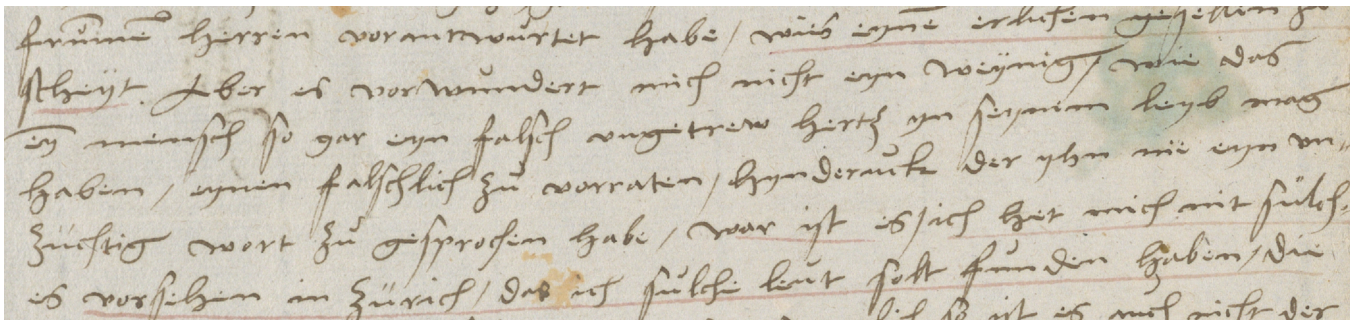 frummē herren vorantwurtet habe / wie es eynē erlichen gesellen zu
scheyt. Aber es vorwundert mich nicht eyn weynig / wie das
eȳ mensch so gar eyn falsch ungetrew hertz yn seynem leyb mag
haben / eynen falschlich zu vorraten / hynderuck der yhn nie eyn un-
züchtig wort zu gesprochen habe / war ist es / ich het mich nit sülch-
es vorsehen in Zürich / das ich sulche leut solt funden haben / die
so ist es auch nicht der